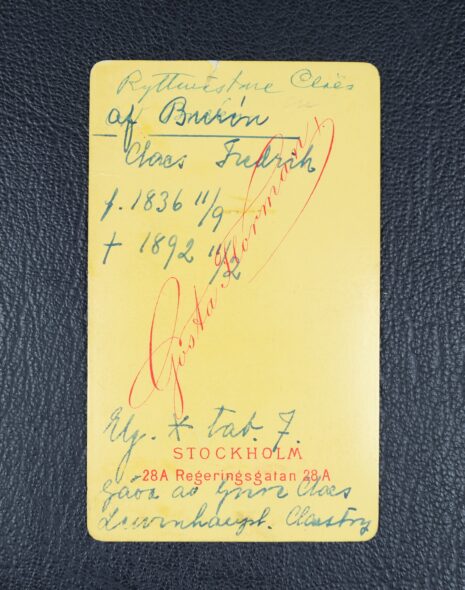 Ryttmästare Claës
af Burén
Claes Fredrik
f. 1836 11/9
+ 1892 11/2
Gösta Florman
Elg. * tab. 7.
STOCKHOLM
28A Regeringsgatan 28A
gåva av Claes
Lewenhaupt. Claestorp